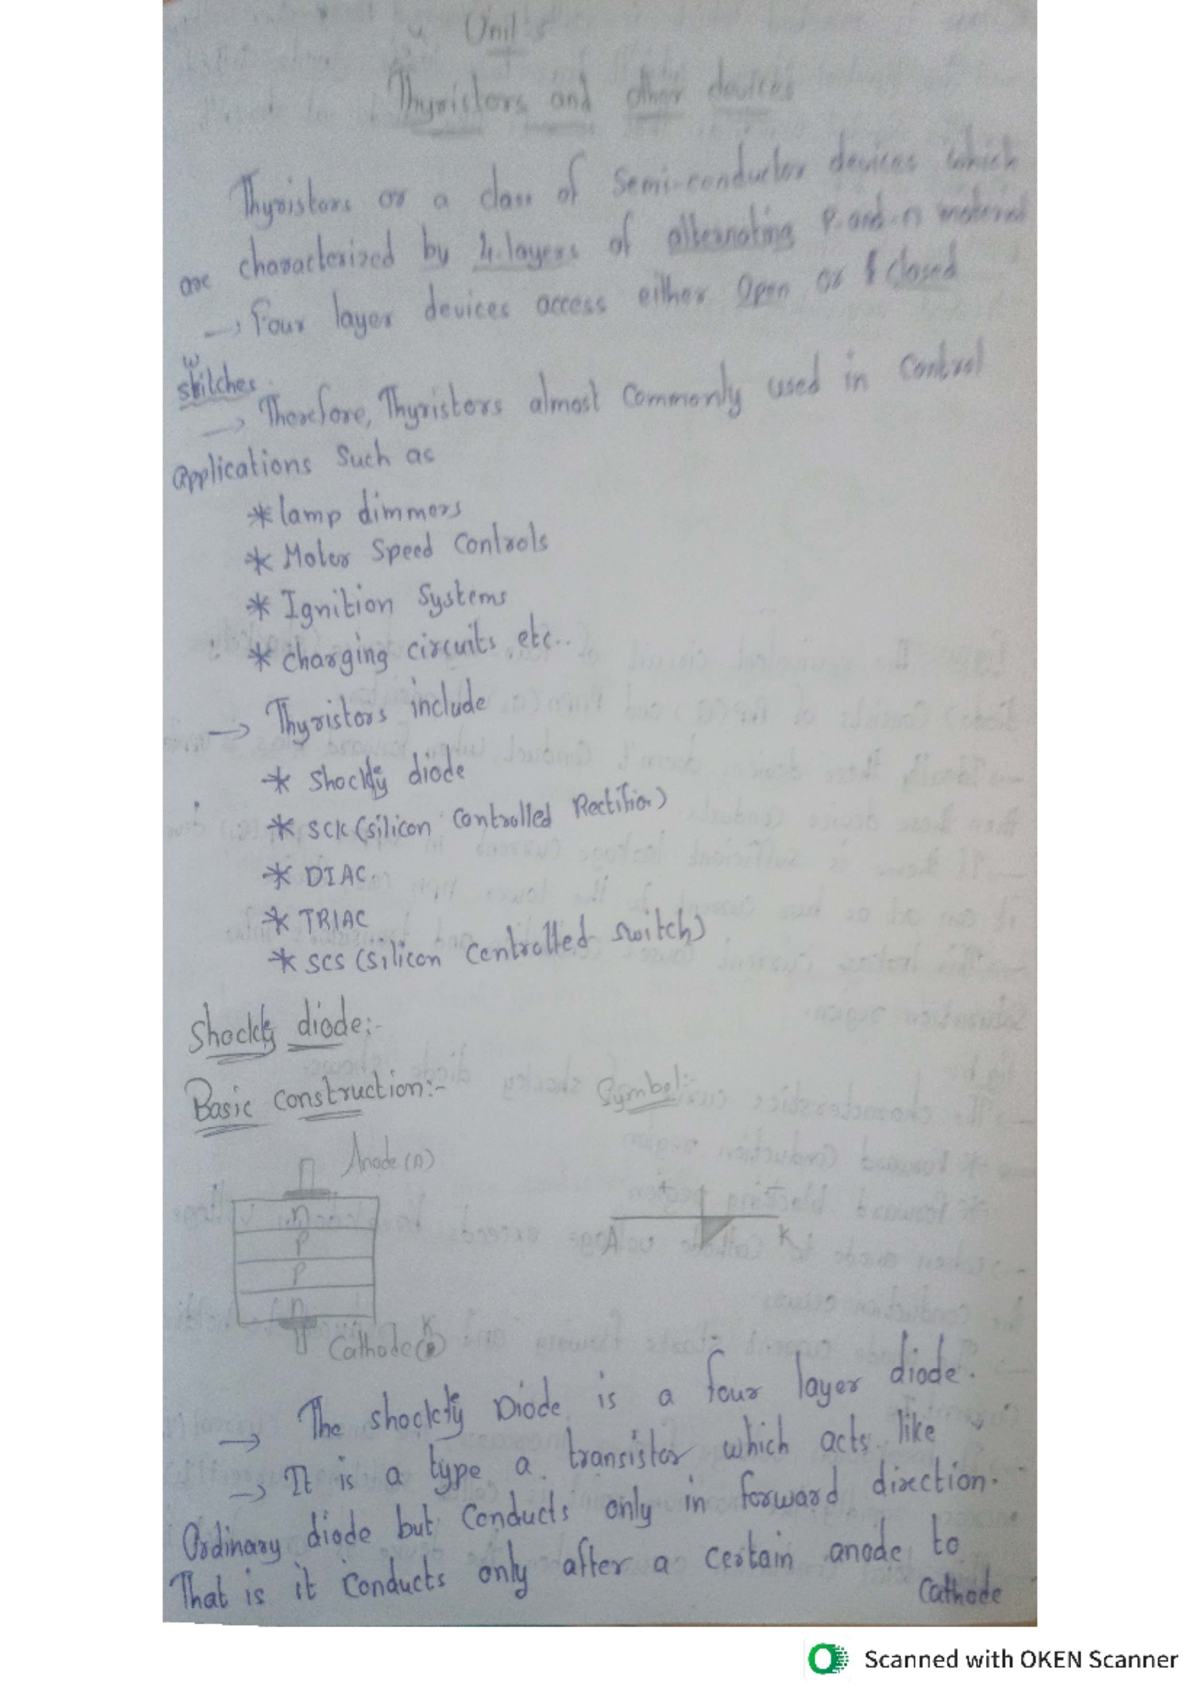 Unit 5
Thyristors and other devices
Thyristors or a class of Semi-conductor devices which
are characterized by 4.layers of alternating P.and.n material
→ Four layer devices access either Open or closed
switches.
→ Therefore, Thyristors almost Commonly used in Control
applications Such as
* lamp dimmers
* Motor Speed Controls
* Ignition Systems
* charging circuits etc..
→ Thyristors include
* Shockly diode
* SCK (silicon Controlled Rectifior)
* DIAC.
* TRIAC
* SCS (silicon Controlled switch)
Shockly diode:-
Basic construction:-
Symbol:-
Anode (A)
n
P
P
n
A
K
Cathode (K)
→ The shockly Diode is a four layer diode.
→ It is a type a transistor which acts like
Ordinary diode but Conducts only in forward direction.
That is it Conducts only after a certain anode to
Cathode
Scanned with OKEN Scanner